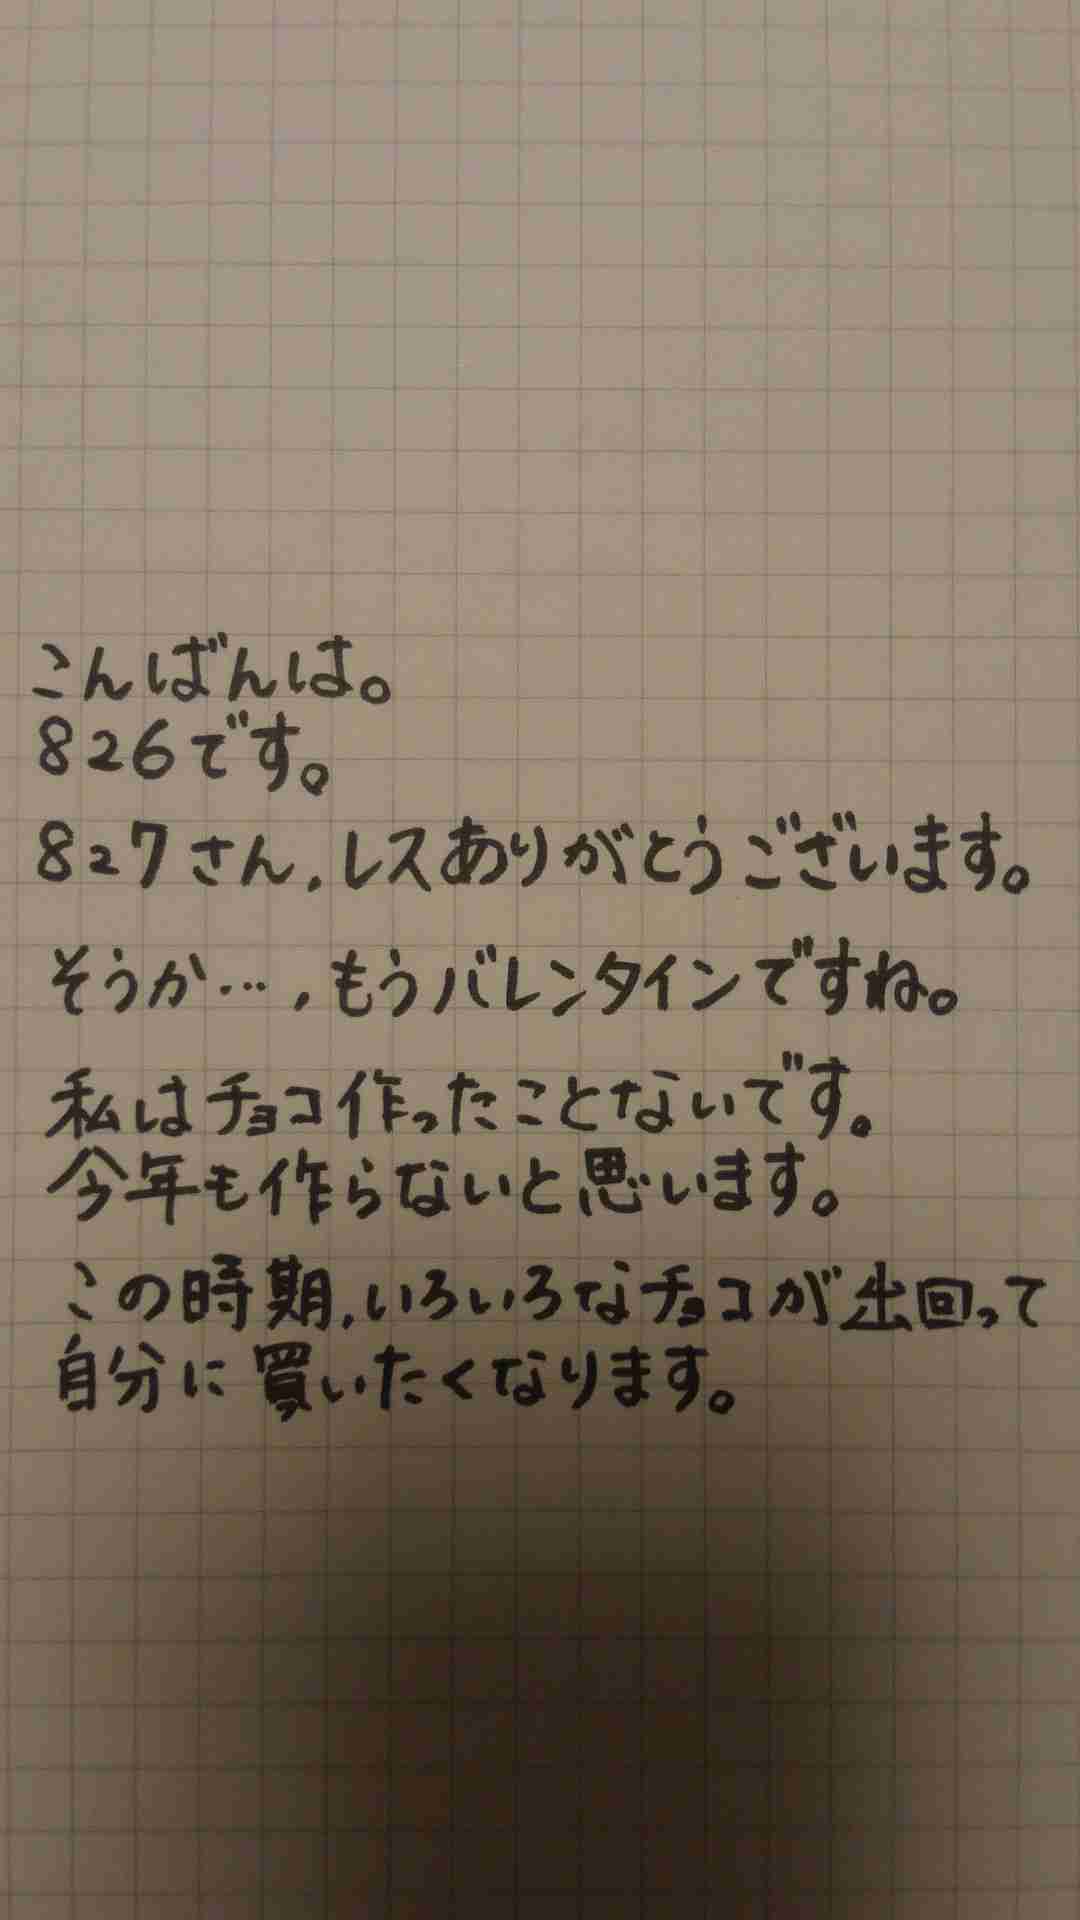 こんばんは。
826です。
827さん,レスありがとうございます。
そうか…,もうバレンタインですね。
私はチョコ作ったことないです。
今年も作らないと思います。
この時期,いろいろなチョコが出回って
自分に買いたくなります。